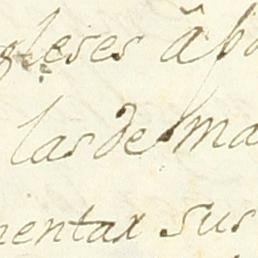 gleses â po
las de ma
mentar sus